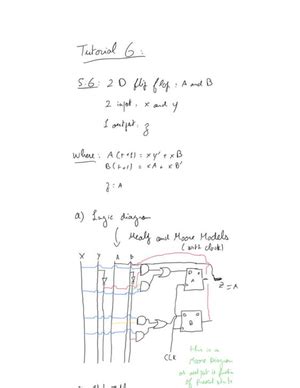 Tutorial 6:
5.6: 2 D flip flop: A and B
2 input, x and y
1 output: z
where: A(t+1) = xy' + xB
B(t+1) = xA + xB'
z = A
a) Logic diagram
Mealy and Moore Models
(with clock)
X Y A B
A
z = A
B
CLK
this is a
Moore Diagram
as output is func
of present state